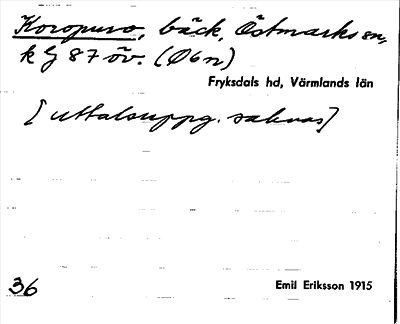 Koropuro, bäck, Östmarks sn,
k G 87 öv. (Ø6n)
Fryksdals hd, Värmlands län
[uttalsuppg. saknas]
36
Emil Eriksson 1915